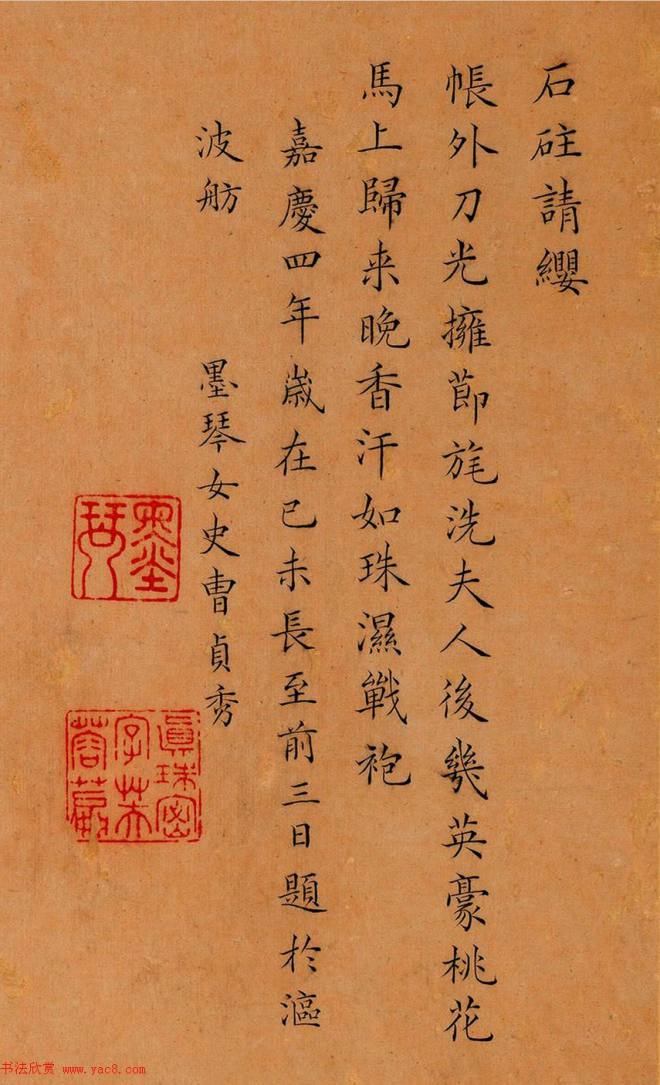 石砫請纓
帳外刀光擁節旄洗夫人後幾英豪桃花
馬上歸来晚香汗如珠濕戰袍
嘉慶四年嵗在己未長至前三日題於漚
波舫 墨琴女史曹貞秀
墨琴
眞珠密字芙蓉
书法欣赏 www.yac8.com